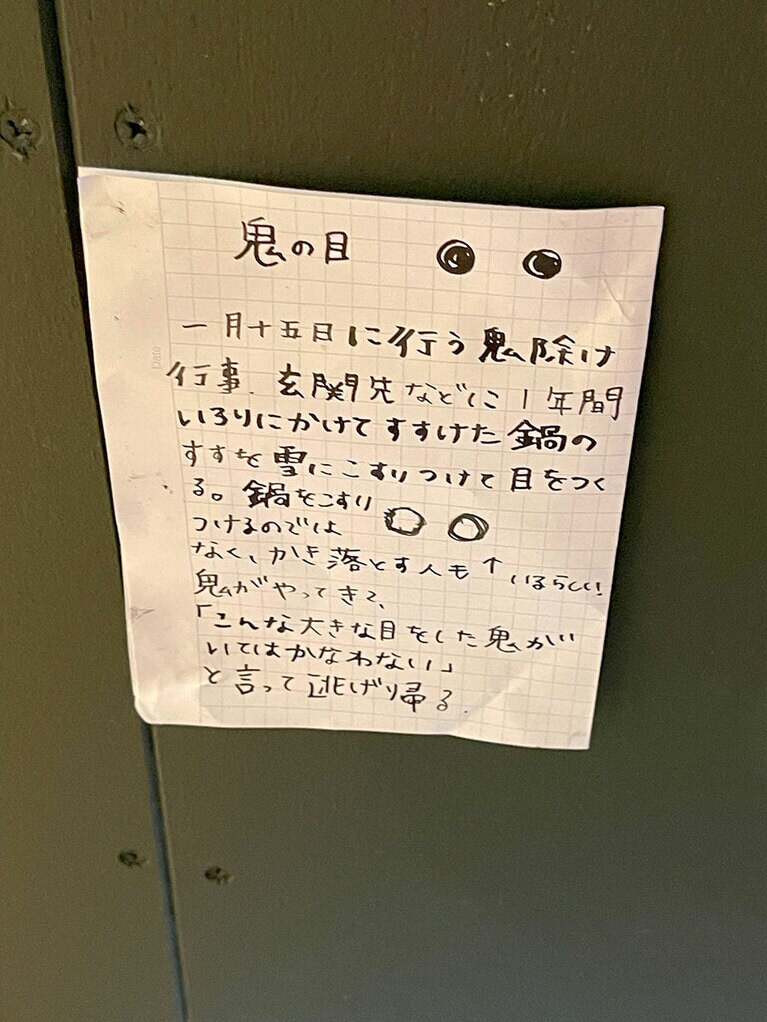 鬼の目
一月十五日に行う鬼除け
行事。玄関先などに1年間
いろりにかけてすすけた鍋の
すすを雪にこすりつけて目をつく
る。鍋をこすり
つけるのでは
なく、かき落とす人も↑いるらしい!
鬼がやってきて、
「こんな大きな目をした鬼が
いてはかなわない」
と言って逃げ帰る.